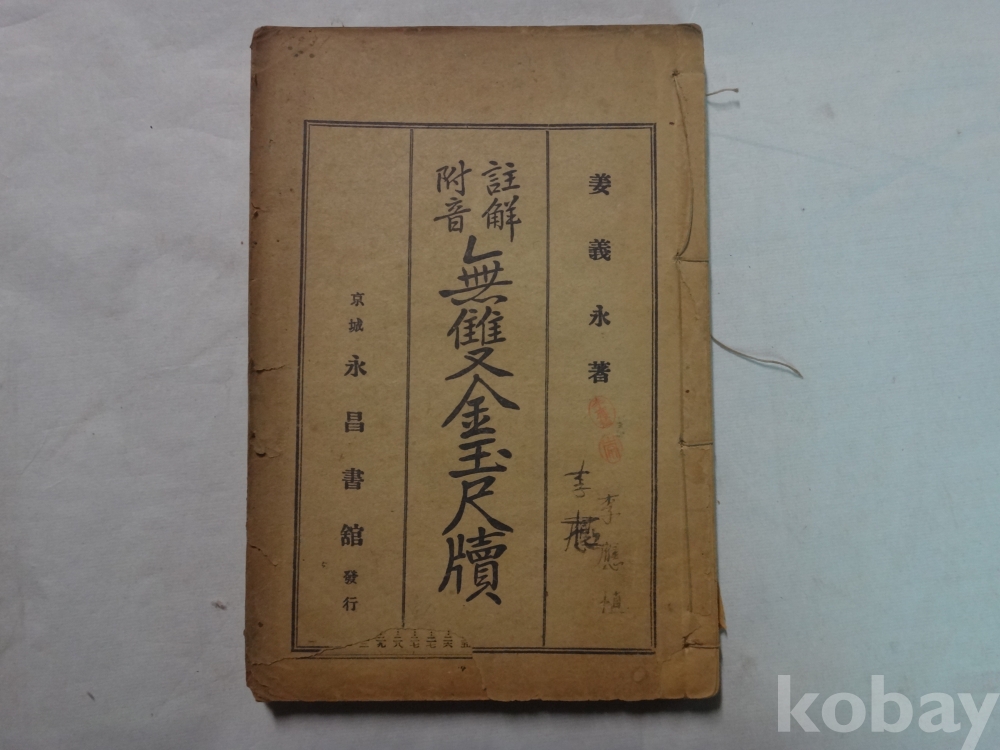 姜義永著
註解
附音
無雙金玉尺牘
京城 永昌書館 發行
李
李應植
kobay